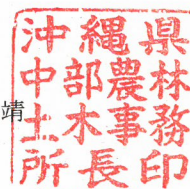 靖
沖縄県
中部農林
土木事務
所長印